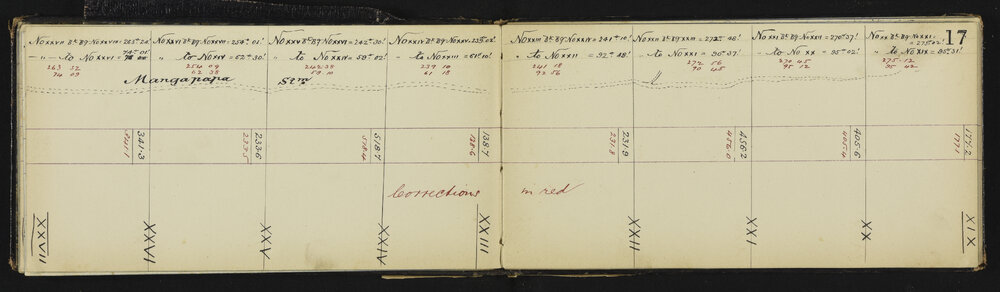 17
No XXVII Bk 89 No XXVIII = 265° 24'
" to No XXVI = 74° 01'
263 32
74 09
No XXVI Bk 89 No XXVII = 254° 01'
" to No XXV = 62° 30'
254 09
62 38
No XXV Bk 89 No XXVI = 242° 30'
" to No XXIV = 59° 02'
242 38
59 10
No XXIV Bk 89 No XXV = 239° 02'
" to No XXIII = 61° 10'
239 10
61 18
No XXIII Bk 89 No XXIV = 241° 10'
" to No XXII = 92° 48'
241 18
92 56
No XXII Bk 89 XXIII = 272° 48'
" to No XXI = 90° 37'
272 56
90 45
No XXI Bk 89 No XXII = 270° 37'
" to No XX = 95° 02'
270 45
95 12
No XX Bk 89 No XXI = 275° 02'
" to No XIX = 95° 31'
275 12
95 42
Mangapapa Str
341.3
341.1
233.6
233.5
518.7
518.4
138.7
138.6
231.9
231.8
456.2
456.0
405.6
405.4
177.2
177.1
Corrections in red
XXVII
XXVI
XXIV
XXIII
XXII
XXI
XX
XIX